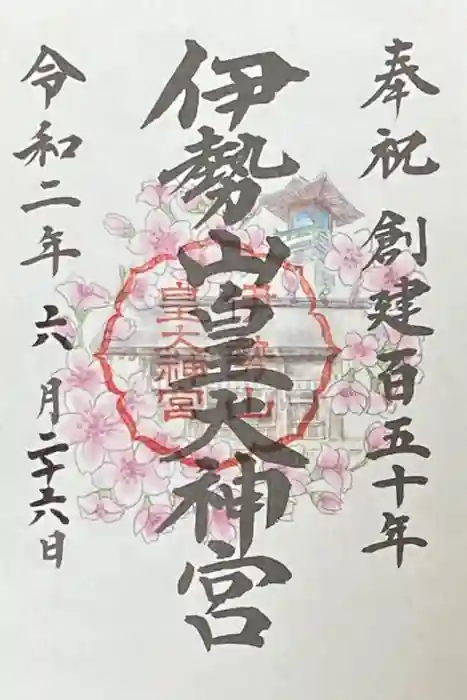 奉祝 創建百五十年
伊勢山皇大神宮
伊勢山
皇大神宮
令和二年 六月二十六日